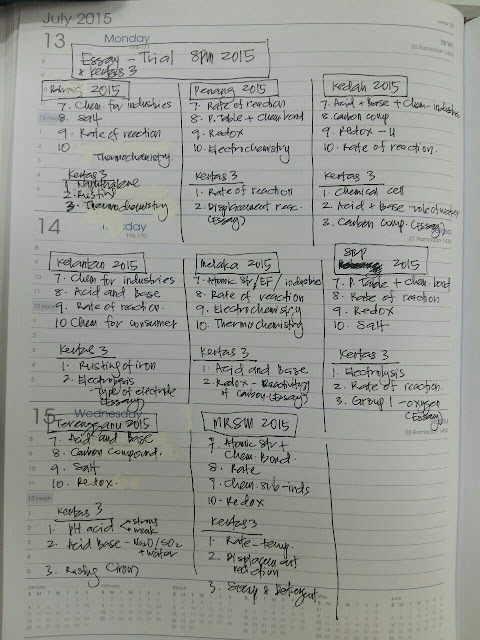 July 2015
13 Monday
Essay - Trial SPM 2015
& Kertas 3
Pahang 2015
7. Chem for industries
8. Salt
9. Rate of reaction
10
Thermochemistry
Kertas 3
1. Naphthalene
2. Rusting
3. Thermochemistry
Penang 2015
7. Rate of reaction
8. P. Table + Chem bond
9. Redox
10. Electrochemistry
Kertas 3
1. Rate of reaction
2. Displacement reac.
(Essay)
Kedah 2015
7. Acid + Base + Chem-industries
8. Carbon comp
9. Redox - U
10. Rate of reaction.
Kertas 3
1. Chemical cell
2. Acid + Base - role of water
3. Carbon Comp. (Essay)
27 Ramadan 1436
14
Kelantan 2015
7. Chem for industries
8. Acid and base
9. Rate of reaction
10 Chem for consumer
Kertas 3
1. Rusting of iron
2. Electrolysis
- Type of electrode
(Essay)
Melaka 2015
7. Atomic Str/EF/industries
8. Rate of reaction
9. Electrochemistry
10. Thermochemistry
Kertas 3
1. Acid and Base
2. Redox - Reactivity
of Carbon (Essay)
SBP 2015
7. P. Table + chem. bond
8. Rate of reaction
9. Redox
10. Salt
Kertas 3
1. Electrolysis
2. Rate of reaction
3. Group 1 - oxygen
(Essay)
28 Ramadan 1436
15 Wednesday
Terengganu 2015
7. Acid and Base
8. Carbon Compound.
9. Salt
10. Redox.
Kertas 3
1. pH acid strong
weak
2. Acid Base - Na2O/SO2
+ water
3. Rusting (iron)
MRSM 2015
7. Atomic Str +
Chem. Bond.
8. Rate
9. Chem. sub-inds
10. Redox
Kertas 3
1. Rate - temp.
2. Displacement
reaction
3. Soap & Detergent